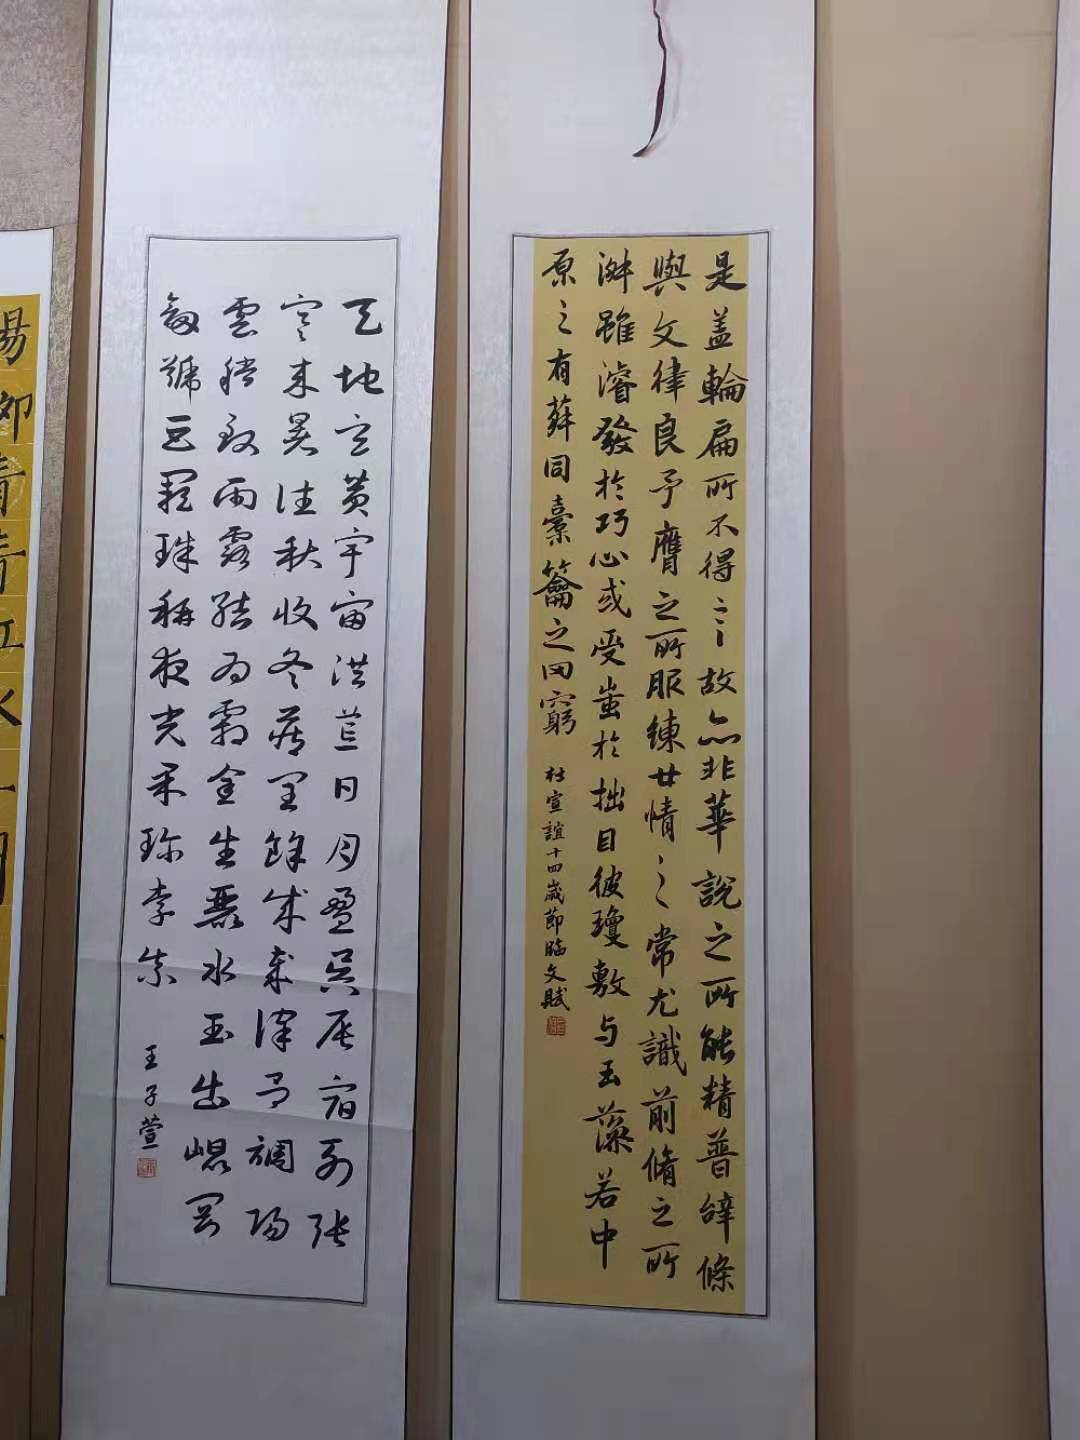 是盖輪扁所不得言故亦非華說之所能精普辭條
與文律良予膺之所服練世情之常尤識前脩之所
淑雖濬發於巧心或受蚩於拙目彼瓊敷与玉藻若中
原之有菽同橐籥之罔窮
杜宣誼十四歲節臨文賦
天地玄黄宇宙洪荒日月盈昃辰宿列張
寒来暑往秋收冬藏閏餘成歲律吕調陽
雲騰致雨露結為霜金生麗水玉出崐岡
劔號巨闕珠稱夜光菓珍李柰
王子萱
楊柳青青江水